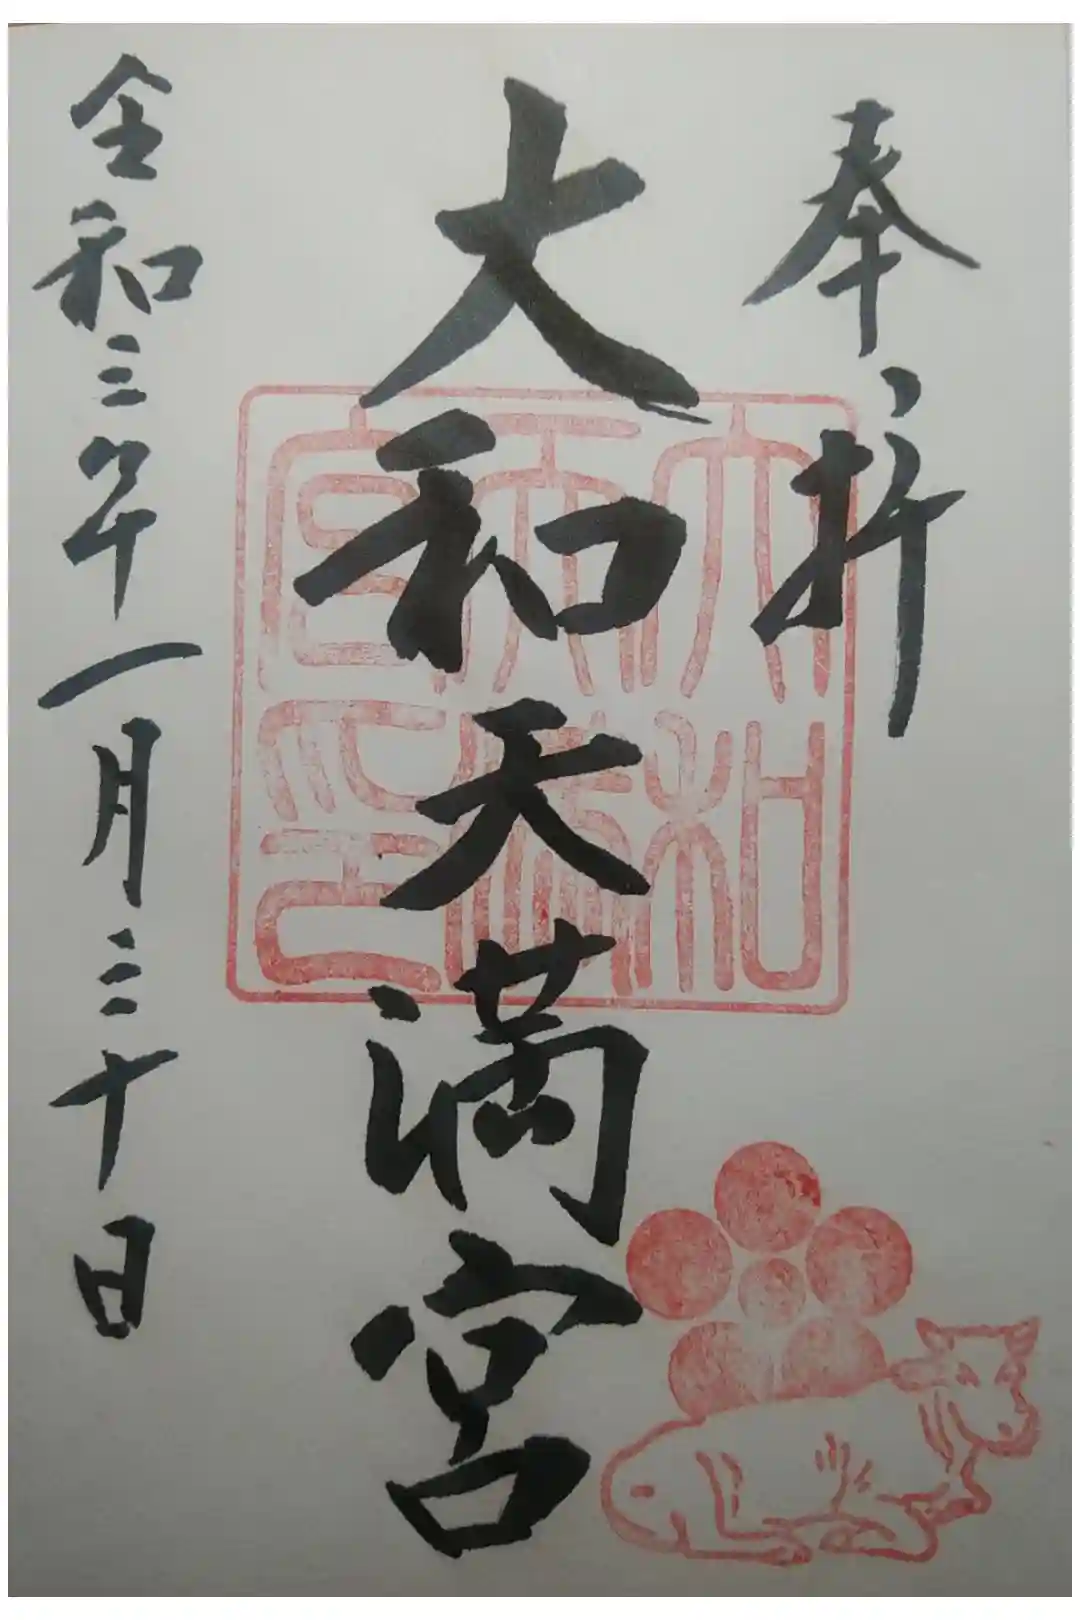 奉祈
大和天満宮
令和三年一月三十日
大和天満宮之印